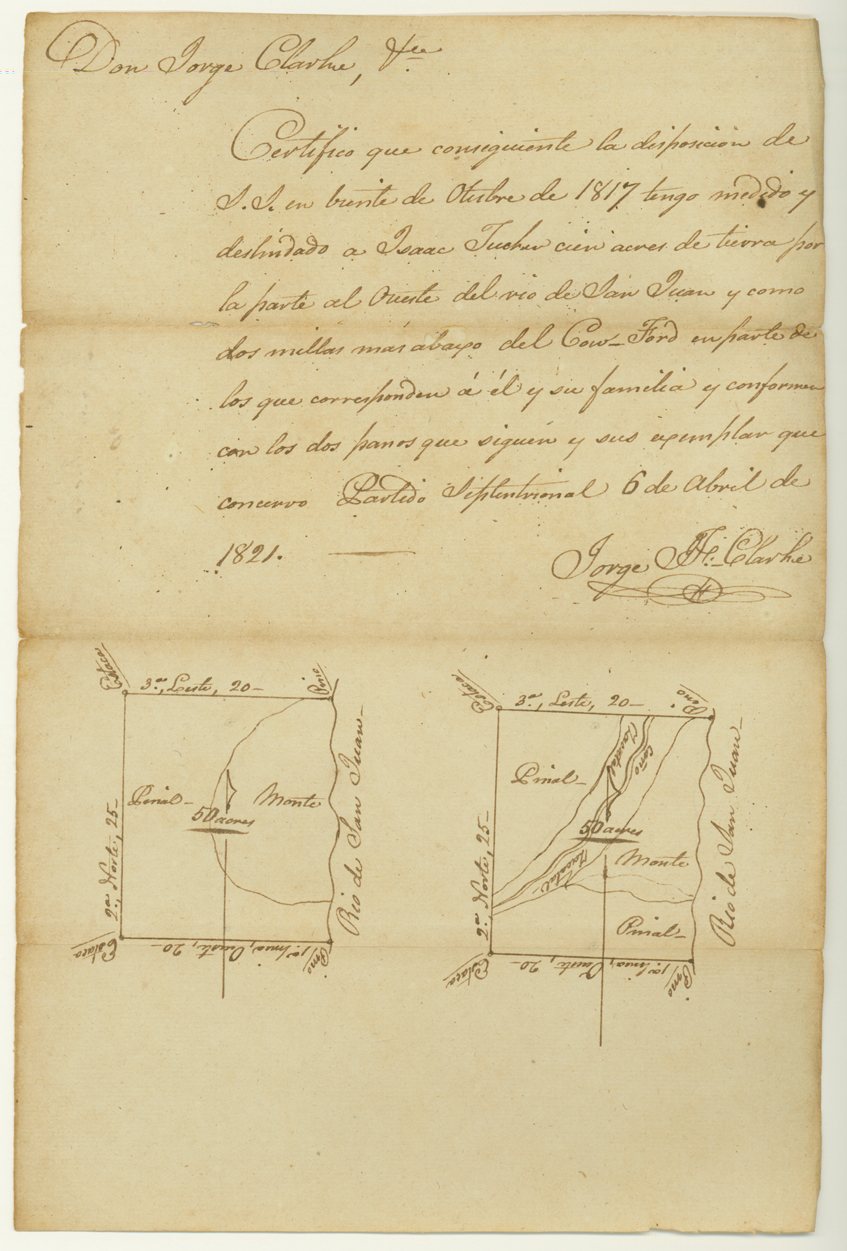 Don Jorge Clarke, &ee
Certifico que consiguiente la disposicion de
S. S. en briente de Otubre de 1817 tengo medido y
deslindado a Isaac Tucker cien acres de tierra por
la parte al Oueste del rio de San Juan y como
dos millas mas abaxo del Cow-Ford en parte de
los que corresponden á él y su familia y conformen
con los dos panos que siguen y sus exemplar que
concervo Partido Septentrional 6 de Abril de
1821.
Jorge F. Clarke
Estaca
3a, Leste, 20-
Pino
Pinal-
Monte
50 acres
2a Norte, 25-
Rio de San Juan-
Estaca
1a linia, Oueste, 20-
Pino
Estaca
3a, Leste, 20-
Pino
Pinal-
Caño
50 acres
Monte
2a Norte, 25-
Pinal-
Rio de San Juan-
Estaca
1a linia, Oueste, 20-
Pino